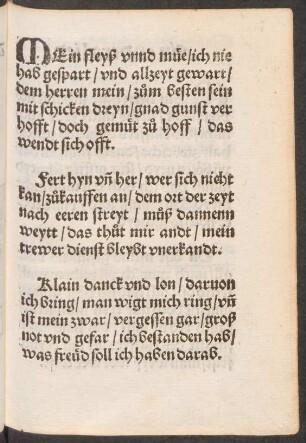 MEin fleyß vnnd müe/ich nie
hab gespart/vnd allzeyt gewart/
dem herren mein/zům besten sein
mit schicken dreyn/gnad gunst ver
hofft/doch gemüt zů hoff/das
wendt sich offt.
Fert hyn vñ her/wer sich nicht
kan/zůkauffen an/dem ort der zeyt
nach eeren streyt/můß dannenn
weytt/das thůt mir andt/mein
trewer dienst bleybt vnerkandt.
Klain danck vnd lon/daruon
ich bring/man wigt mich ring/vñ
ist mein zwar/vergessen gar/groß
not vnd gefar/ich bestanden hab/
was freüd soll ich haben darab.